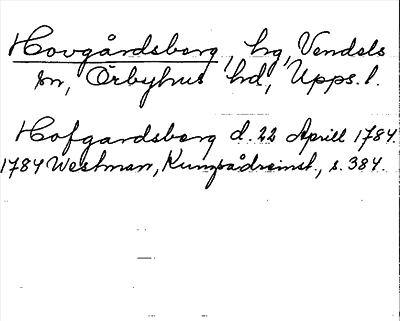 Hovgårdsberg, hg, Vendels
sn, Örbyhus hd, Upps. l.
Hofgardsberg d. 22 Aprill 1784.
1784 Westman, , s. 384.